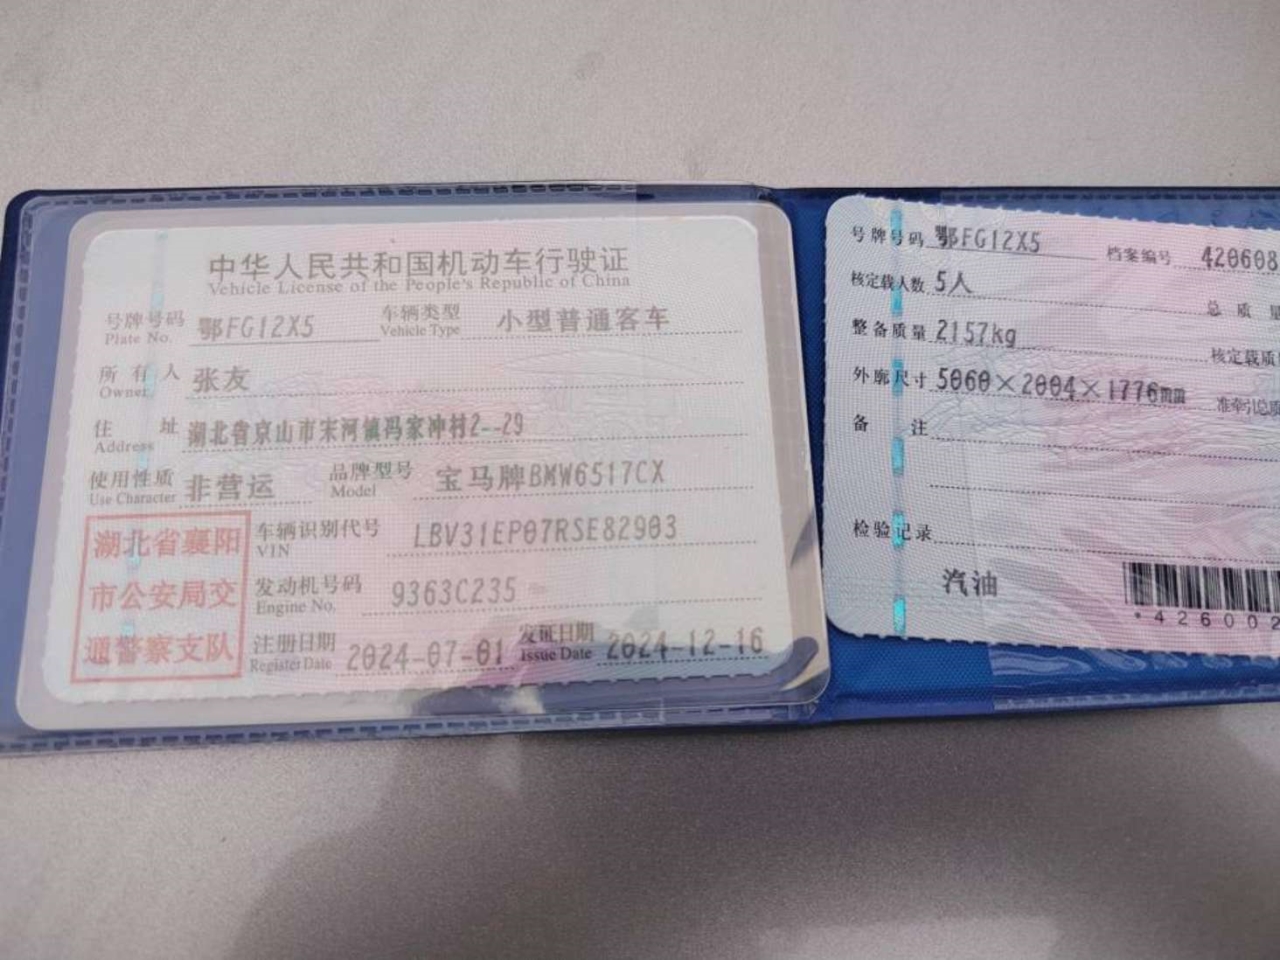 中华人民共和国机动车行驶证
Vehicle License of the People's Republic of China
号牌号码 Plate No. 鄂FG12X5 车辆类型 Vehicle Type 小型普通客车
所有人 Owner 张友
住址 Address 湖北省京山市宋河镇冯家冲村2--29
使用性质 Use Character 非营运 品牌型号 Model 宝马牌BMW6517CX
湖北省襄阳
市公安局交
通警察支队
车辆识别代号 VIN LBV31EP07RSE82903
发动机号码 Engine No. 9363C235
注册日期 Register Date 2024-07-01 发证日期 Issue Date 2024-12-16
号牌号码 鄂FG12X5 档案编号 420608
核定载人数 5人 总质量
整备质量 2157kg 核定载质
外廓尺寸 5060×2004×1776mm 准牵引总质
备注
检验记录
汽油
*426002